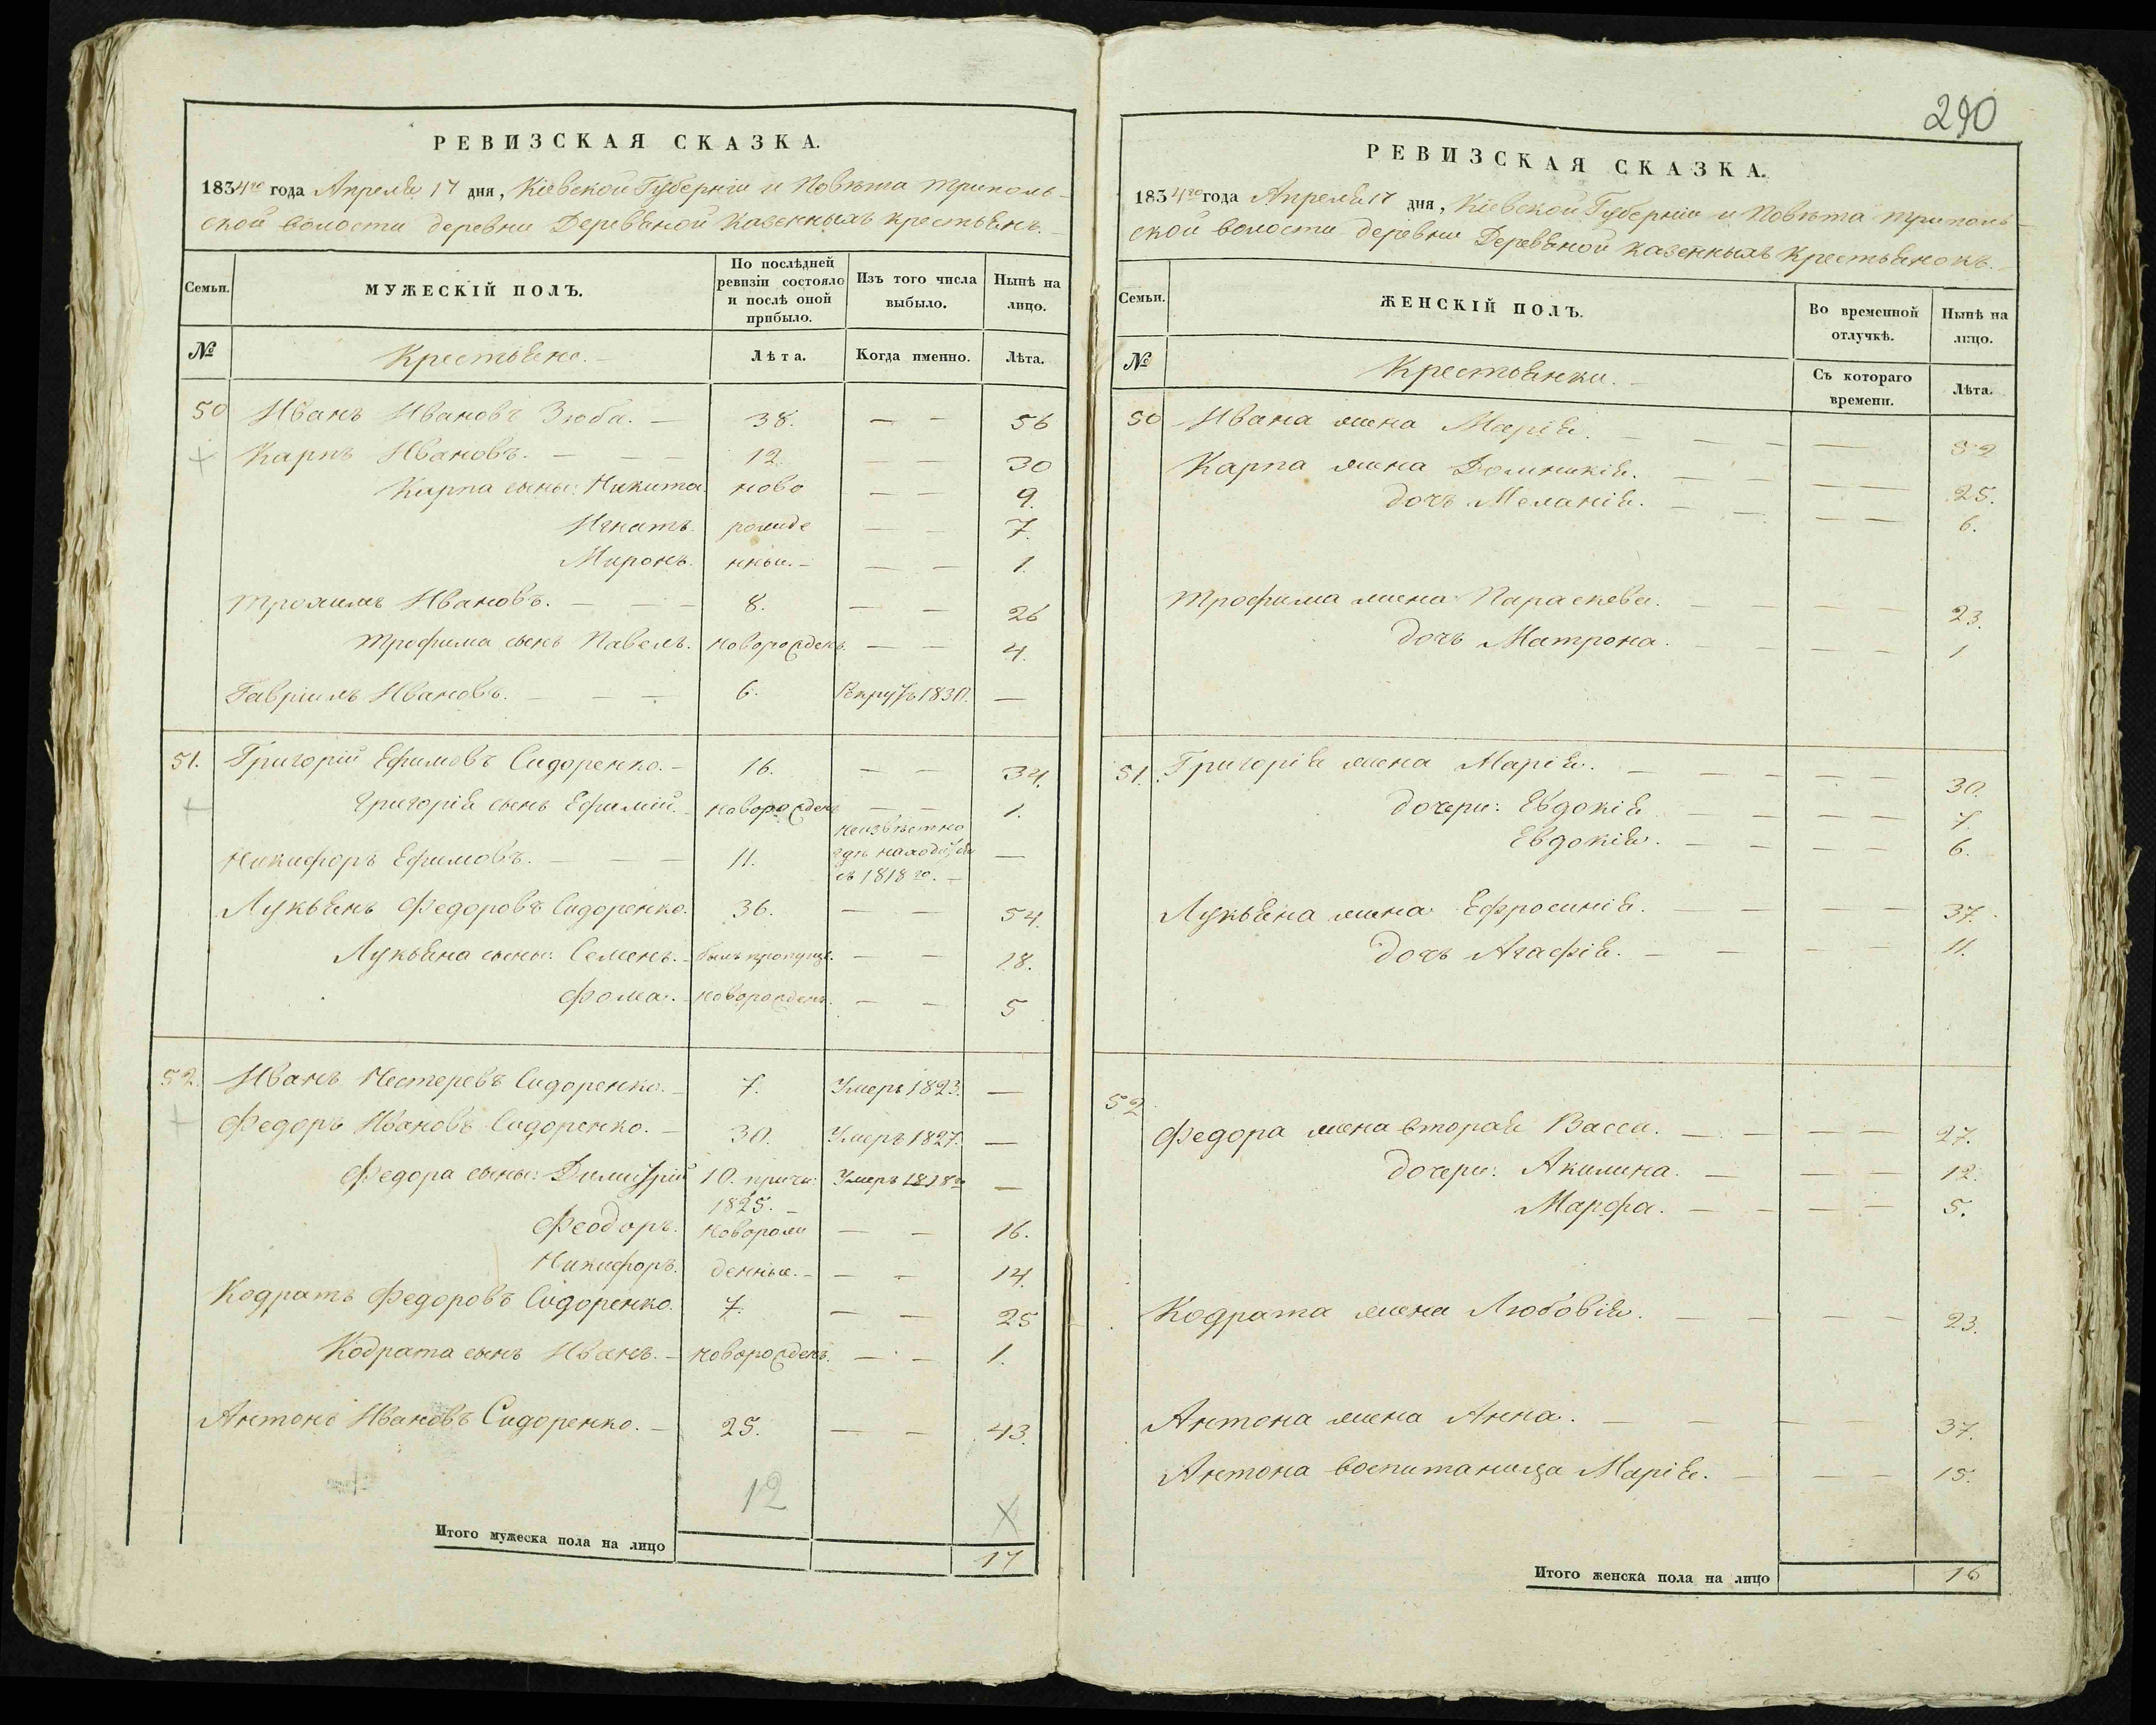 РЕВИЗСКАЯ СКАЗКА.
1834го года Апреля 17 дня, Кіевской Губерніи и Повѣта Триполь-
ской волости деревни Деревяной Казенныхъ крестьянъ.
Семьи. МУЖЕСКІЙ ПОЛЪ. По послѣдней ревизіи состояло и послѣ оной прибыло. Изъ того числа выбыло. Нынѣ на лицо.
№ Крестьяне. Лѣта. Когда именно. Лѣта.
50 Иванъ Ивановъ Зюба. 38. — — 56
Карпъ Ивановъ. 12. — — 30
Карпа сыны: Никита. ново — — 9.
Игнатъ. рожде — — 7.
Миронъ. нныи. — — 1.
Трохимъ Ивановъ. 8. — — 26
Трофима сынъ Павелъ. новорожденъ. — — 4.
Гавріилъ Ивановъ. 6. Врекрутъ 1830. —
51. Григорій Ефимовъ Сидоренко. 16. — — 34.
Григорія сынъ Ефимій. новорожденъ — — 1.
Никифоръ Ефимовъ. 11. неизвѣстно гдѣ находится съ 1818го. —
Лукьянъ Федоровъ Сидоренко. 36. — — 54.
Лукьяна сыны: Семенъ. былъ пропущ. — — 18.
Фома. новорожденъ. — — 5
52. Иванъ Нестеревъ Сидоренко. 7. Умеръ 1823. —
Федоръ Ивановъ Сидоренко. 30. Умеръ 1827. —
Федора сыны: Димитрій 10. причи: 1825. Умеръ 1818го —
Феодоръ. новорож — — 16.
Никифоръ. денные. — — 14.
Кодратъ Федоровъ Сидоренко. 7. — — 25
Кодрата сынъ Иванъ. новорожденъ. — — 1.
Антонъ Ивановъ Сидоренко. 25. — — 43.
12 X
Итого мужеска пола на лицо 17
290
РЕВИЗСКАЯ СКАЗКА.
1834го года Апреля 17 дня, Кіевской Губерніи и Повѣта Триполь-
ской волости деревни Деревяной казенныхъ Крестьянокъ.
Семьи. ЖЕНСКІЙ ПОЛЪ. Во временной отлучкѣ. Нынѣ на лицо.
№ Крестьянки. Съ котораго времени. Лѣта.
50 Ивана жена Марія. — — 52
Карпа жена Доминикія. — — 25.
дочъ Меланія. — — 6.
Трофима жена Параскева. — — 23.
дочъ Матрона. — — 1
51. Григорія жена Марія. — — 30.
дочери: Евдокія — — 7.
Евдокія. — — 6.
Лукьяна жена Ефросинія. — — 37.
дочъ Агафія. — — 11.
52
Федора жена вторая Васса. — — 27.
дочери: Акилина. — — 12.
Марфа. — — 5.
Кодрата жена Любовія. — — 23.
Антона жена Анна. — 37.
Антона воспитаница Марія. — — 15.
Итого женска пола на лицо 16